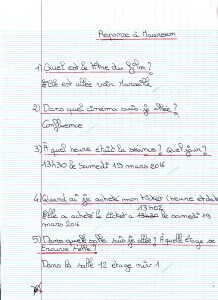 Reponse à Maureen
1) Quel est le titre du film?
Elle est allée voir Marseille
2) Dans quel cinéma suis je allée?
Confluence
3) À quel heure était la séance? Quel jour?
13h30 le samedi 19 mars 2016
4) Quand ai je acheté mon ticket (heure et date
Elle a acheté le ticket a 13h30 le samedi 19
mars 2016
5) Dans quelle salle suis je allée? À quelle étage se
trouve t'elle?
Dans la salle 12 étage 1